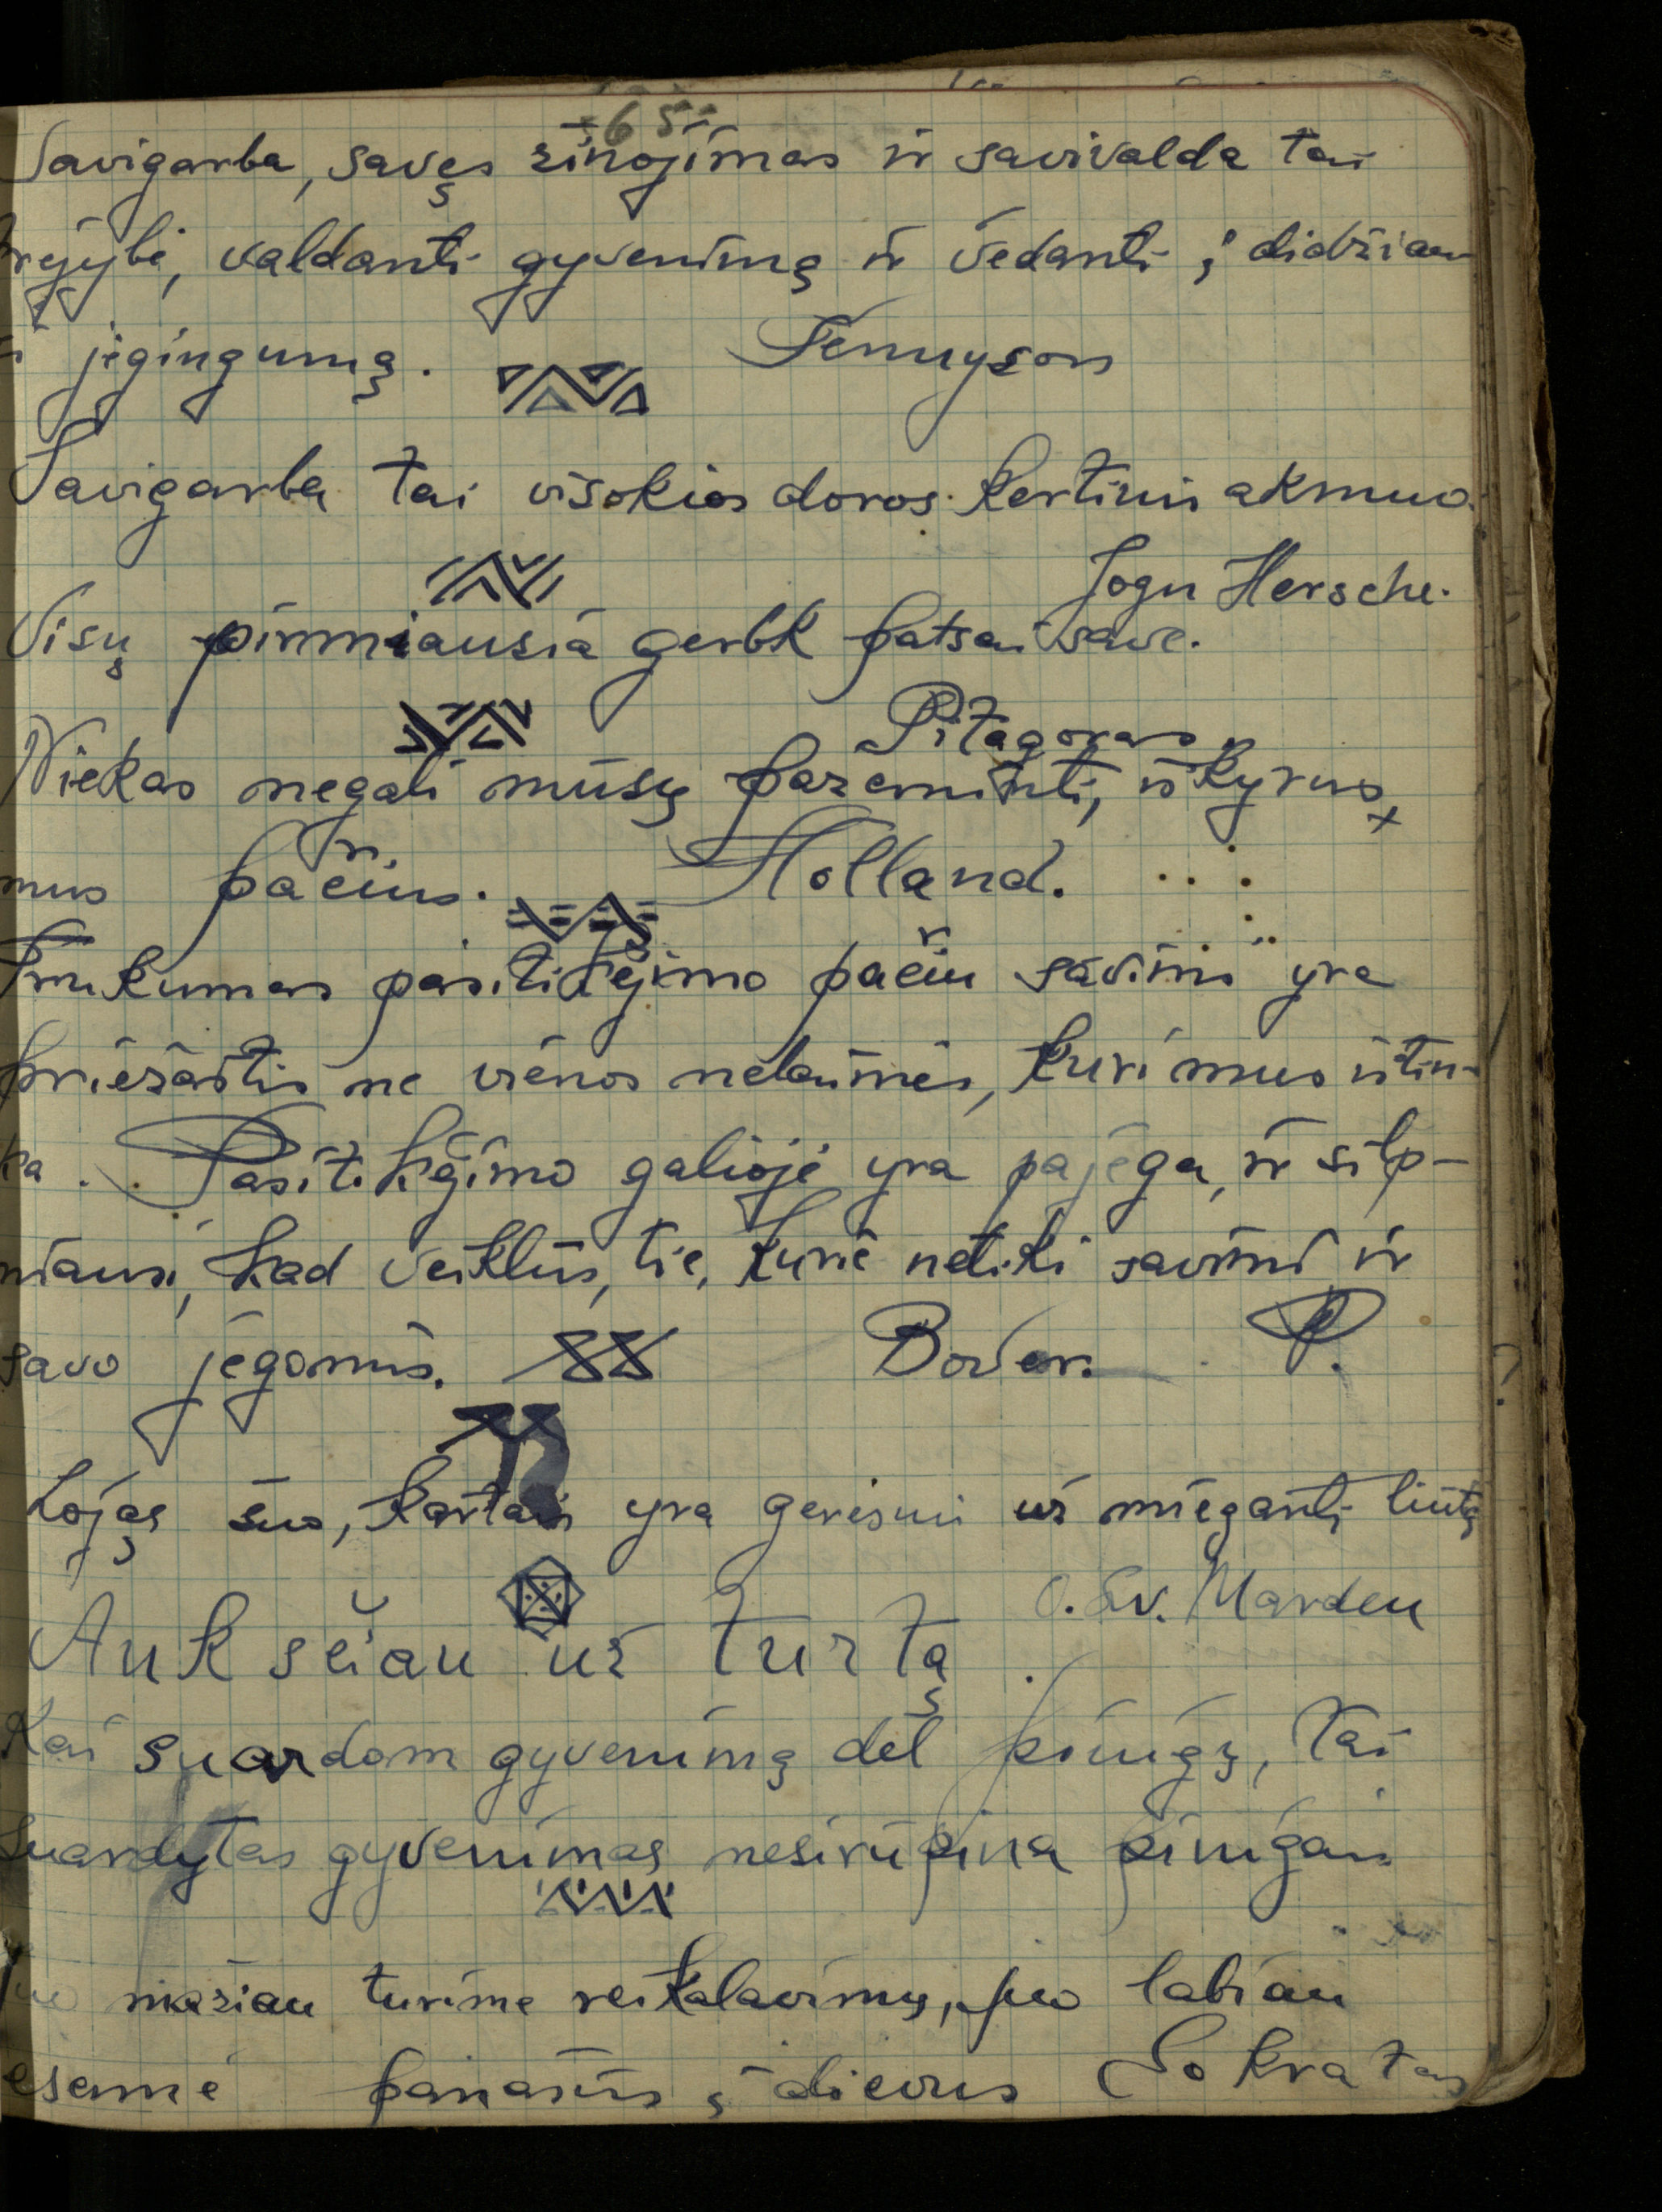 -65-
Savigarba, savęs žinojimas ir savivalda tai
trejybė, valdanti gyvenimą ir vedanti į didžiau
jėgingumą. Tennyson
Savigarba tai visokios doros kertinis akmuo.
Jogn Hersche.
Visų pirmiausia gerbk patsai save.
Pitagoras
Niekas negali mūsų pažeminti, išskyrus
mus pačius. Holland.
Trukumas pasitikėjimo pačiu savimi yra
priežastis ne vienos nelaimės, kuri mus ištin-
ka. Pasitikėjimo galioje yra pajėga, ir silp-
niausi, kad veiklūs, tie, kurie netiki savimi ir
savo jėgomis. Boven. P.
Lojąs šuo, kartais yra geresnis už miegantį liūtą
O. Sv. Marden
Aukščiau už turtą
Kai suardom gyvenimą dėl pinigų, tai
suardytas gyvenimas nesirūpina pinigais
Juo mažiau turime reikalavimų, juo labiau
esame panašūs į dievus Sokratas